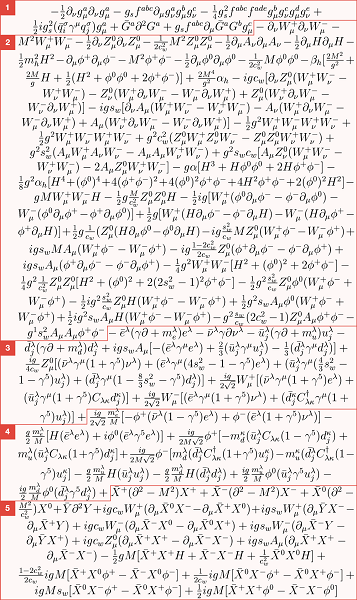 1
−½∂νgaμ∂νgaμ − gsfabc∂μgaνgbμgcν − ¼g2sfabcfadegbμgcνgdμgeν +
½ig2s(q̄σiγμqσj)gaμ + Ḡa∂2Ga + gsfabc∂μḠaGbgcμ − ∂νW+μ∂νW−μ −
2 M2W+μW−μ − ½∂νZ0μ∂νZ0μ − 1/2c2w M2Z0μZ0μ − ½∂μAν∂μAν − ½∂μH∂μH −
½m2hH2 − ∂μφ+∂μφ− − M2φ+φ− − ½∂μφ0∂μφ0 − 1/2c2w Mφ0φ0 − βh[2M2/g2 +
2M/g H + ½(H2 + φ0φ0 + 2φ+φ−)] + 2M4/g2 αh − igcw[∂νZ0μ(W+μW−ν −
W+νW−μ) − Z0ν(W+μ∂νW−μ − W−μ∂νW+μ) + Z0μ(W+ν∂νW−μ −
W−ν∂νW+μ)] − igsw[∂νAμ(W+μW−ν − W+νW−μ) − Aν(W+μ∂νW−μ −
W−μ∂νW+μ) + Aμ(W+ν∂νW−μ − W−ν∂νW+μ)] − ½g2W+μW−μW+νW−ν +
½g2W+μW−νW+μW−ν + g2c2w(Z0μW+μZ0νW−ν − Z0μZ0μW+νW−ν) +
g2s2w(AμW+μAνW−ν − AμAμW+νW−ν) + g2swcw[AμZ0ν(W+μW−ν −
W+νW−μ) − 2AμZ0μW+νW−ν] − gα[H3 + Hφ0φ0 + 2Hφ+φ−] −
⅛g2αh[H4 + (φ0)4 + 4(φ+φ−)2 + 4(φ0)2φ+φ− + 4H2φ+φ− + 2(φ0)2H2] −
gMW+μW−μH − ½g M/c2w Z0μZ0μH − ½ig[W+μ(φ0∂μφ− − φ−∂μφ0) −
W−μ(φ0∂μφ+ − φ+∂μφ0)] + ½g[W+μ(H∂μφ− − φ−∂μH) − W−μ(H∂μφ+ −
φ+∂μH)] + ½g 1/cw (Z0μ(H∂μφ0 − φ0∂μH) − ig s2w/cw MZ0μ(W+μφ− − W−μφ+) +
igswMAμ(W+μφ− − W−μφ+) − ig 1−2c2w/2cw Z0μ(φ+∂μφ− − φ−∂μφ+) +
igswAμ(φ+∂μφ− − φ−∂μφ+) − ¼g2W+μW−μ[H2 + (φ0)2 + 2φ+φ−] −
¼g2 1/c2w Z0μZ0μ[H2 + (φ0)2 + 2(2s2w − 1)2φ+φ−] − ½g2 s2w/cw Z0μφ0(W+μφ− +
W−μφ+) − ½ig2 s2w/cw Z0μH(W+μφ− − W−μφ+) + ½g2swAμφ0(W+μφ− +
W−μφ+) + ½ig2swAμH(W+μφ− − W−μφ+) − g2 sw/cw (2c2w − 1)Z0μAμφ+φ− −
g1s2wAμAμφ+φ− − ēλ(γ∂ + mλe)eλ − ν̄λγ∂νλ − ūλj(γ∂ + mλu)uλj −
3 d̄λj(γ∂ + mλd)dλj + igswAμ[−(ēλγμeλ) + ⅔(ūλjγμuλj) − ⅓(d̄λjγμdλj)] +
ig/4cw Z0μ[(ν̄λγμ(1 + γ5)νλ) + (ēλγμ(4s2w − 1 − γ5)eλ) + (ūλjγμ(4/3s2w −
1 − γ5)uλj) + (d̄λjγμ(1 − 8/3s2w − γ5)dλj)] + ig/2√2 W+μ[(ν̄λγμ(1 + γ5)eλ) +
(ūλjγμ(1 + γ5)Cλκdκj)] + ig/2√2 W−μ[(ēλγμ(1 + γ5)νλ) + (d̄κjC†λκγμ(1 +
γ5)uλj)] + ig/2√2 mλe/M [−φ+(ν̄λ(1 − γ5)eλ) + φ−(ēλ(1 + γ5)νλ)] −
4 g/2 mλe/M [H(ēλeλ) + iφ0(ēλγ5eλ)] + ig/2M√2 φ+[−mκd(ūλjCλκ(1 − γ5)dκj) +
mλu(ūλjCλκ(1 + γ5)dκj] + ig/2M√2 φ−[mλd(d̄λjC†λκ(1 + γ5)uκj) − mκu(d̄λjC†λκ(1 −
γ5)uκj] − g/2 mλu/M H(ūλjuλj) − g/2 mλd/M H(d̄λjdλj) + ig/2 mλu/M φ0(ūλjγ5uλj) −
ig/2 mλd/M φ0(d̄λjγ5dλj) + X̄+(∂2 − M2)X+ + X̄−(∂2 − M2)X− + X̄0(∂2 −
5 M2/c2w)X0 + Ȳ∂2Y + igcwW+μ(∂μX̄0X− − ∂μX̄+X0) + igswW+μ(∂μȲX− −
∂μX̄+Y) + igcwW−μ(∂μX̄−X0 − ∂μX̄0X+) + igswW−μ(∂μX̄−Y −
∂μȲX+) + igcwZ0μ(∂μX̄+X+ − ∂μX̄−X−) + igswAμ(∂μX̄+X+ −
∂μX̄−X−) − ½gM[X̄+X+H + X̄−X−H + 1/c2w X̄0X0H] +
1−2c2w/2cw igM[X̄+X0φ+ − X̄−X0φ−] + 1/2cw igM[X̄0X−φ+ − X̄0X+φ−] +
igMsw[X̄0X−φ+ − X̄0X+φ−] + ½igM[X̄+X+φ0 − X̄−X−φ0]